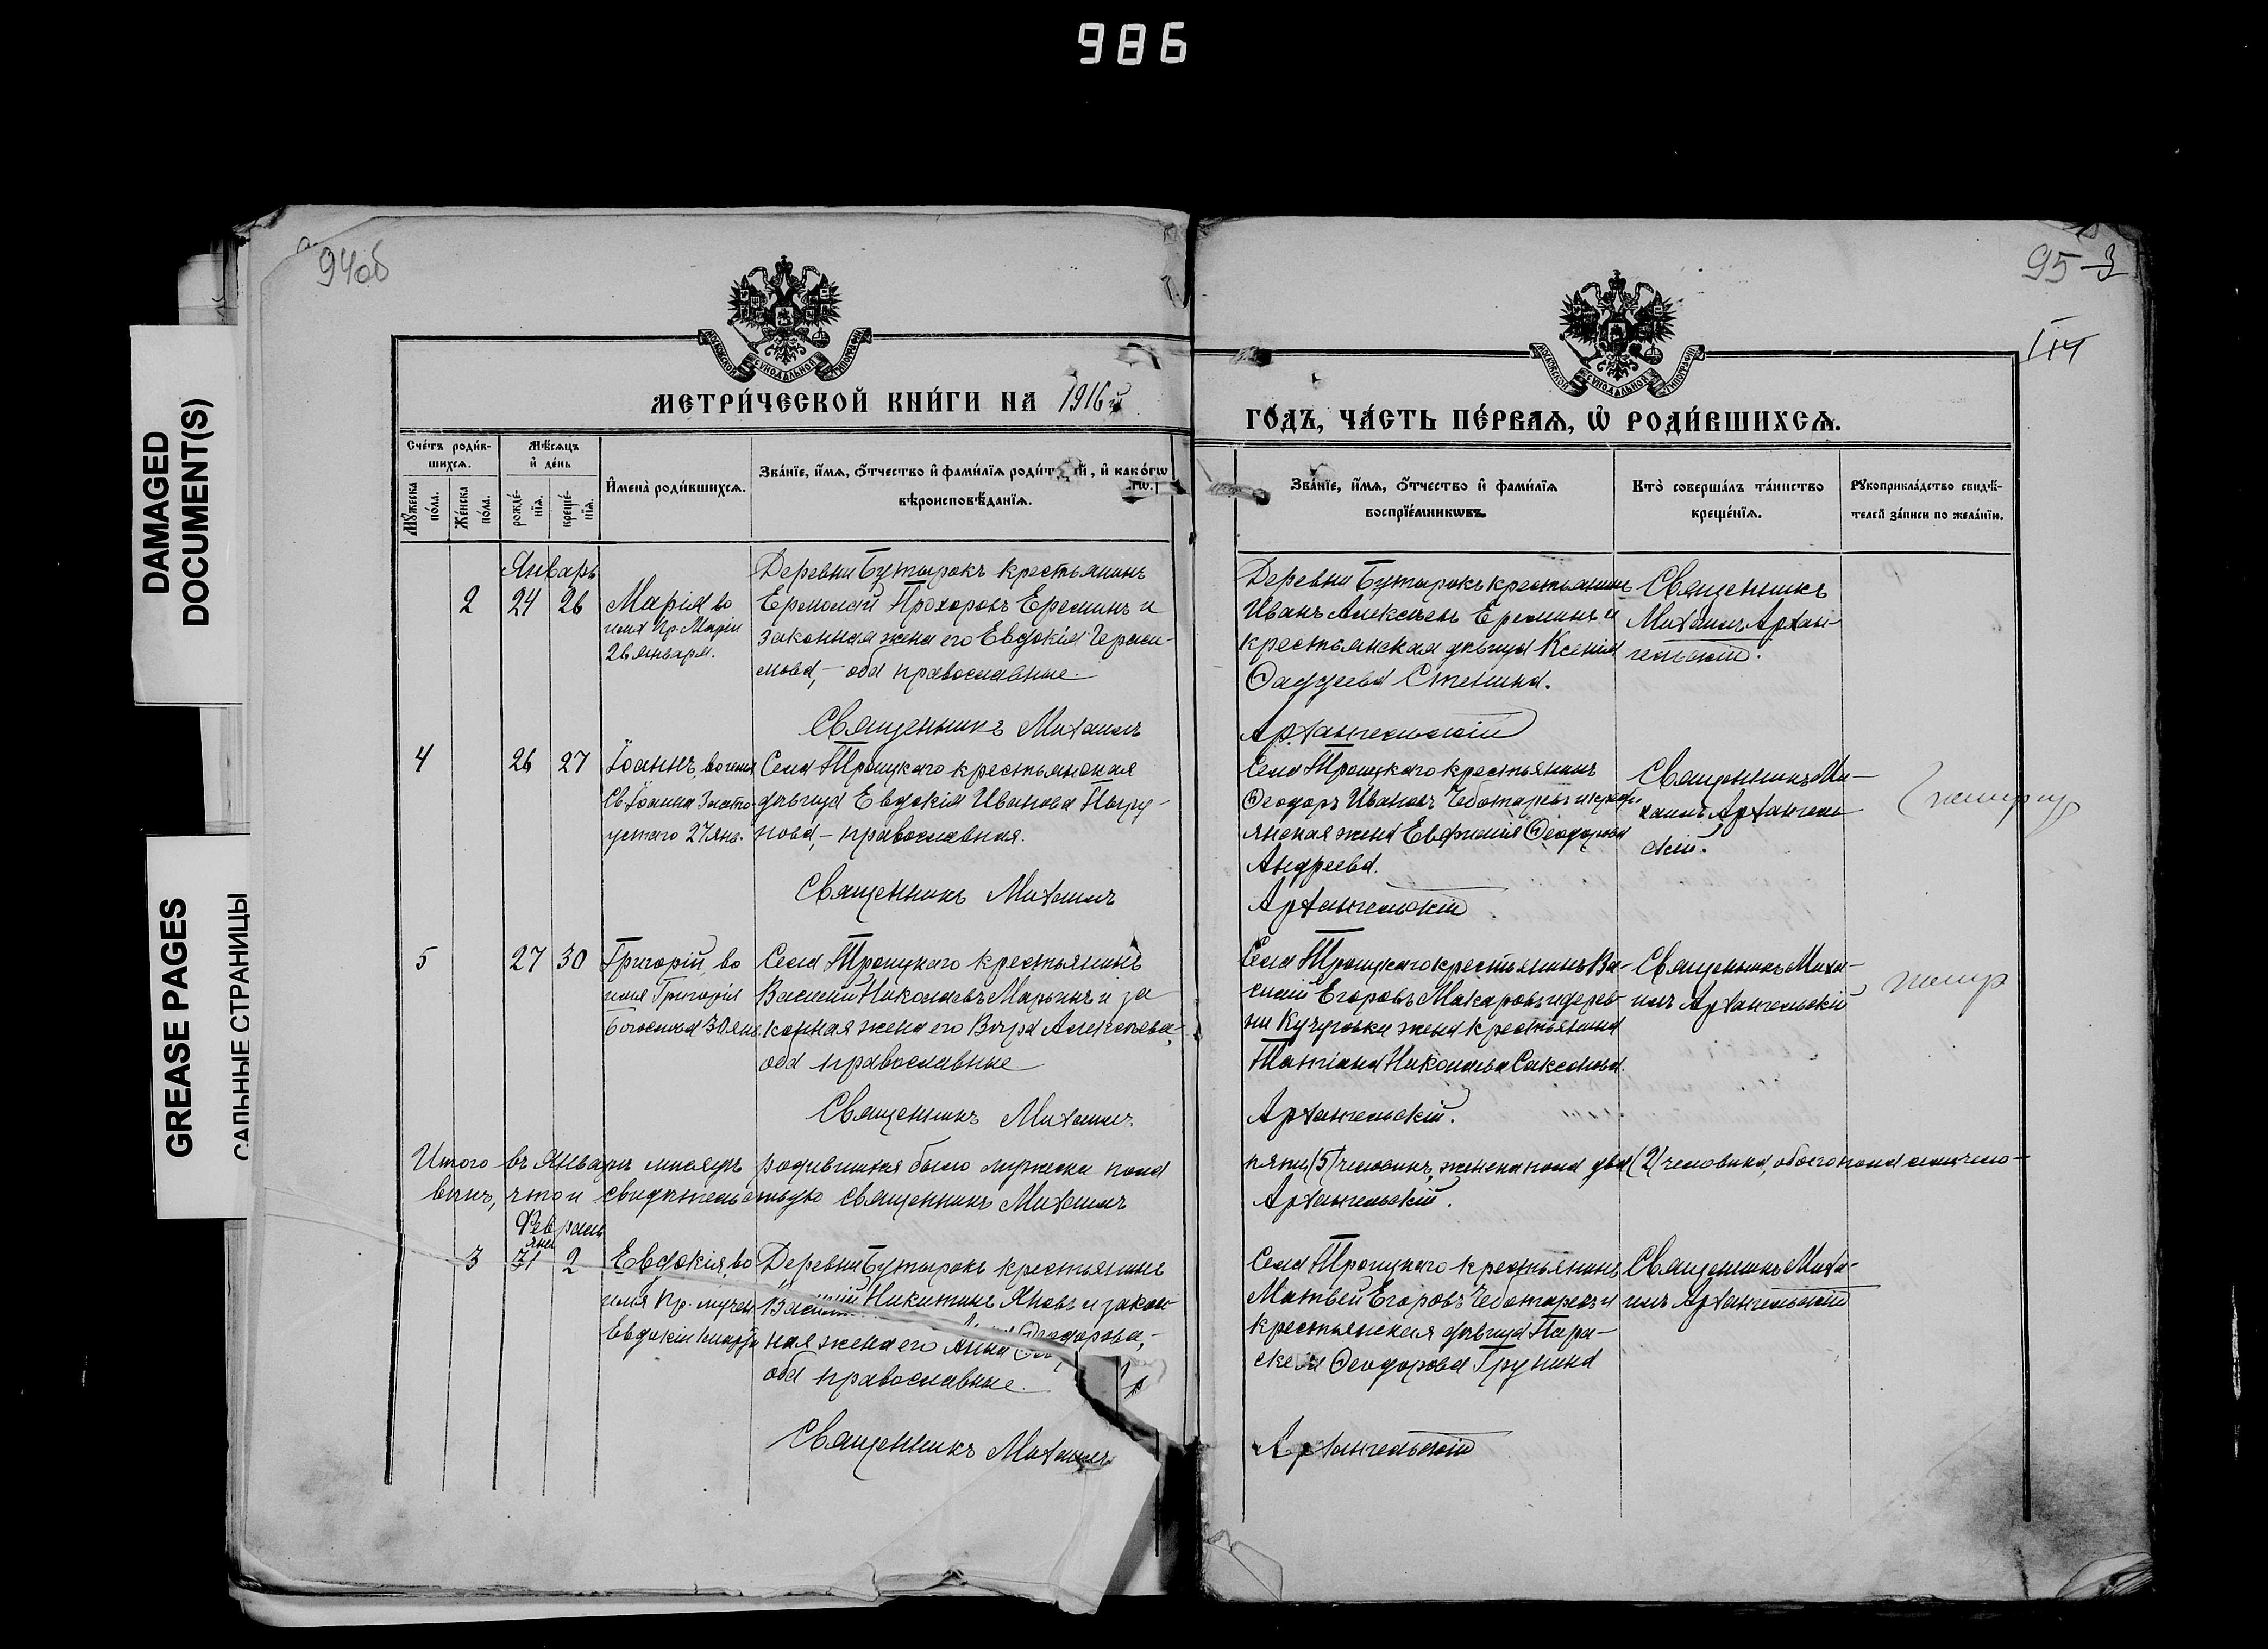 986
DAMAGED
DOCUMENT(S)
GREASE PAGES
САЛЬНЫЕ СТРАНИЦЫ
94об
95 3
МОСКОВСКОЙ СѴНОДАЛЬНОЙ ТИПОГРАФІИ
МОСКОВСКОЙ СѴНОДАЛЬНОЙ ТИПОГРАФІИ
МЕТРИ́ЧЕСКОЙ КНИ́ГИ НА 1916й
ГО́ДЪ, ЧА́СТЬ ПЕ́РВАѦ, Ѡ҆ РОДИ́ВШИХСѦ.
Сче́тъ роди́в-
шихсѧ.
Мѣ́сѧцъ
и҆ де́нь
Мꙋ́жеска
по́ла.
Же́нска
по́ла.
рожде́-
нїѧ.
креще́-
нїѧ.
И҆мена̀ роди́вшихсѧ.
Зва́нїе, и҆́мѧ, ѻ҆́тчество и҆ фами́лїѧ роди́т й, и҆ како́гѡ
вѣроисповѣ́данїѧ.
Зва́нїе, и҆́мѧ, ѻ҆́тчество и҆ фами́лїѧ
воспрїе́мникѡвъ.
Кто̀ соверша́лъ та́инство
креще́нїѧ.
Рꙋкоприкла́дство свидѣ́-
телей за́писи по жела́нїю.
Январь
2 24 26
Марія во
имя Пр. Маріи
26 января.
Деревни Бутырокъ крестьянинъ
Ермолай Прохоровъ Ереминъ и
законная жена его Евдокія Гераси-
мова, – оба православные.
Священникъ Михаилъ
Деревни Бутырокъ крестьянинъ
Иванъ Алексѣевъ Ереминъ и
крестьянская дѣвица Ксенія
Ѳаддеева Стенина.
Архангельскій
Священникъ
Михаилъ Архан-
гельскій.
4 26 27
Іоаннъ, во имя
Св. Іоанна Злато-
устаго 27 янв.
Села Троицкаго крестьянская
дѣвица Евдокія Иванова
нова, – православная.
Священникъ Михаилъ
Села Троицкаго крестьянинъ
Ѳеодоръ Ивановъ Чеботаревъ и кресть-
янская жена Евфимія Ѳеодорова
Андреева.
Архангельскій
Священникъ Ми-
хаилъ Архангель-
скій.
5 27 30
Григорій, во
имя Григорія
Богослова 30 янв.
Села Троицкаго крестьянинъ
Василий Николаевъ Марьинъ и за
конная жена его Вѣра Алексѣева,
оба православные.
Священникъ Михаилъ
Села Троицкаго крестьянинъ Ва-
силій Егоровъ Макаровъ и дерев-
ни Кучуговки жена крестьянина
Татіана Николаева Саксонова.
Архангельскій.
Священникъ Миха-
илъ Архангельскій
Итого въ Январѣ мѣсяцѣ родившихся было мужеска пола пять (5) человѣкъ, женска пола два (2) человѣка, обоего пола семь чело-
вѣкъ, что и свидѣтельствую священникъ Михаилъ Архангельскій.
Февраль
янв.
3 31 2
Евдокія, во
имя Пр. мучен.
Евдокіи 1 марта
Деревни Бутырокъ крестьянинъ
Никитинъ Яновъ и закон-
ная жена его Анна Ѳеодорова, –
оба православные.
Священникъ Михаилъ
Села Троицкаго крестьянинъ
Матвей Егоровъ Чеботаревъ и
крестьянская дѣвица Пара-
скева Ѳеодорова Грунина
Архангельскій
Священникъ Миха-
илъ Архангельскій